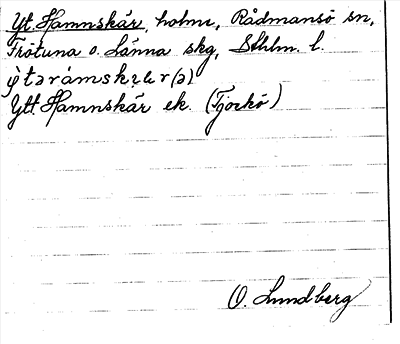 Yt. Hamnskär, holme, Rådmansö sn,
Frötuna o. Länna skg, Sthlm. l.
ỳtərámskɛ̣ær(ə)
Ytt. Hamnskär ek. (Tjockö)
O. Lundberg